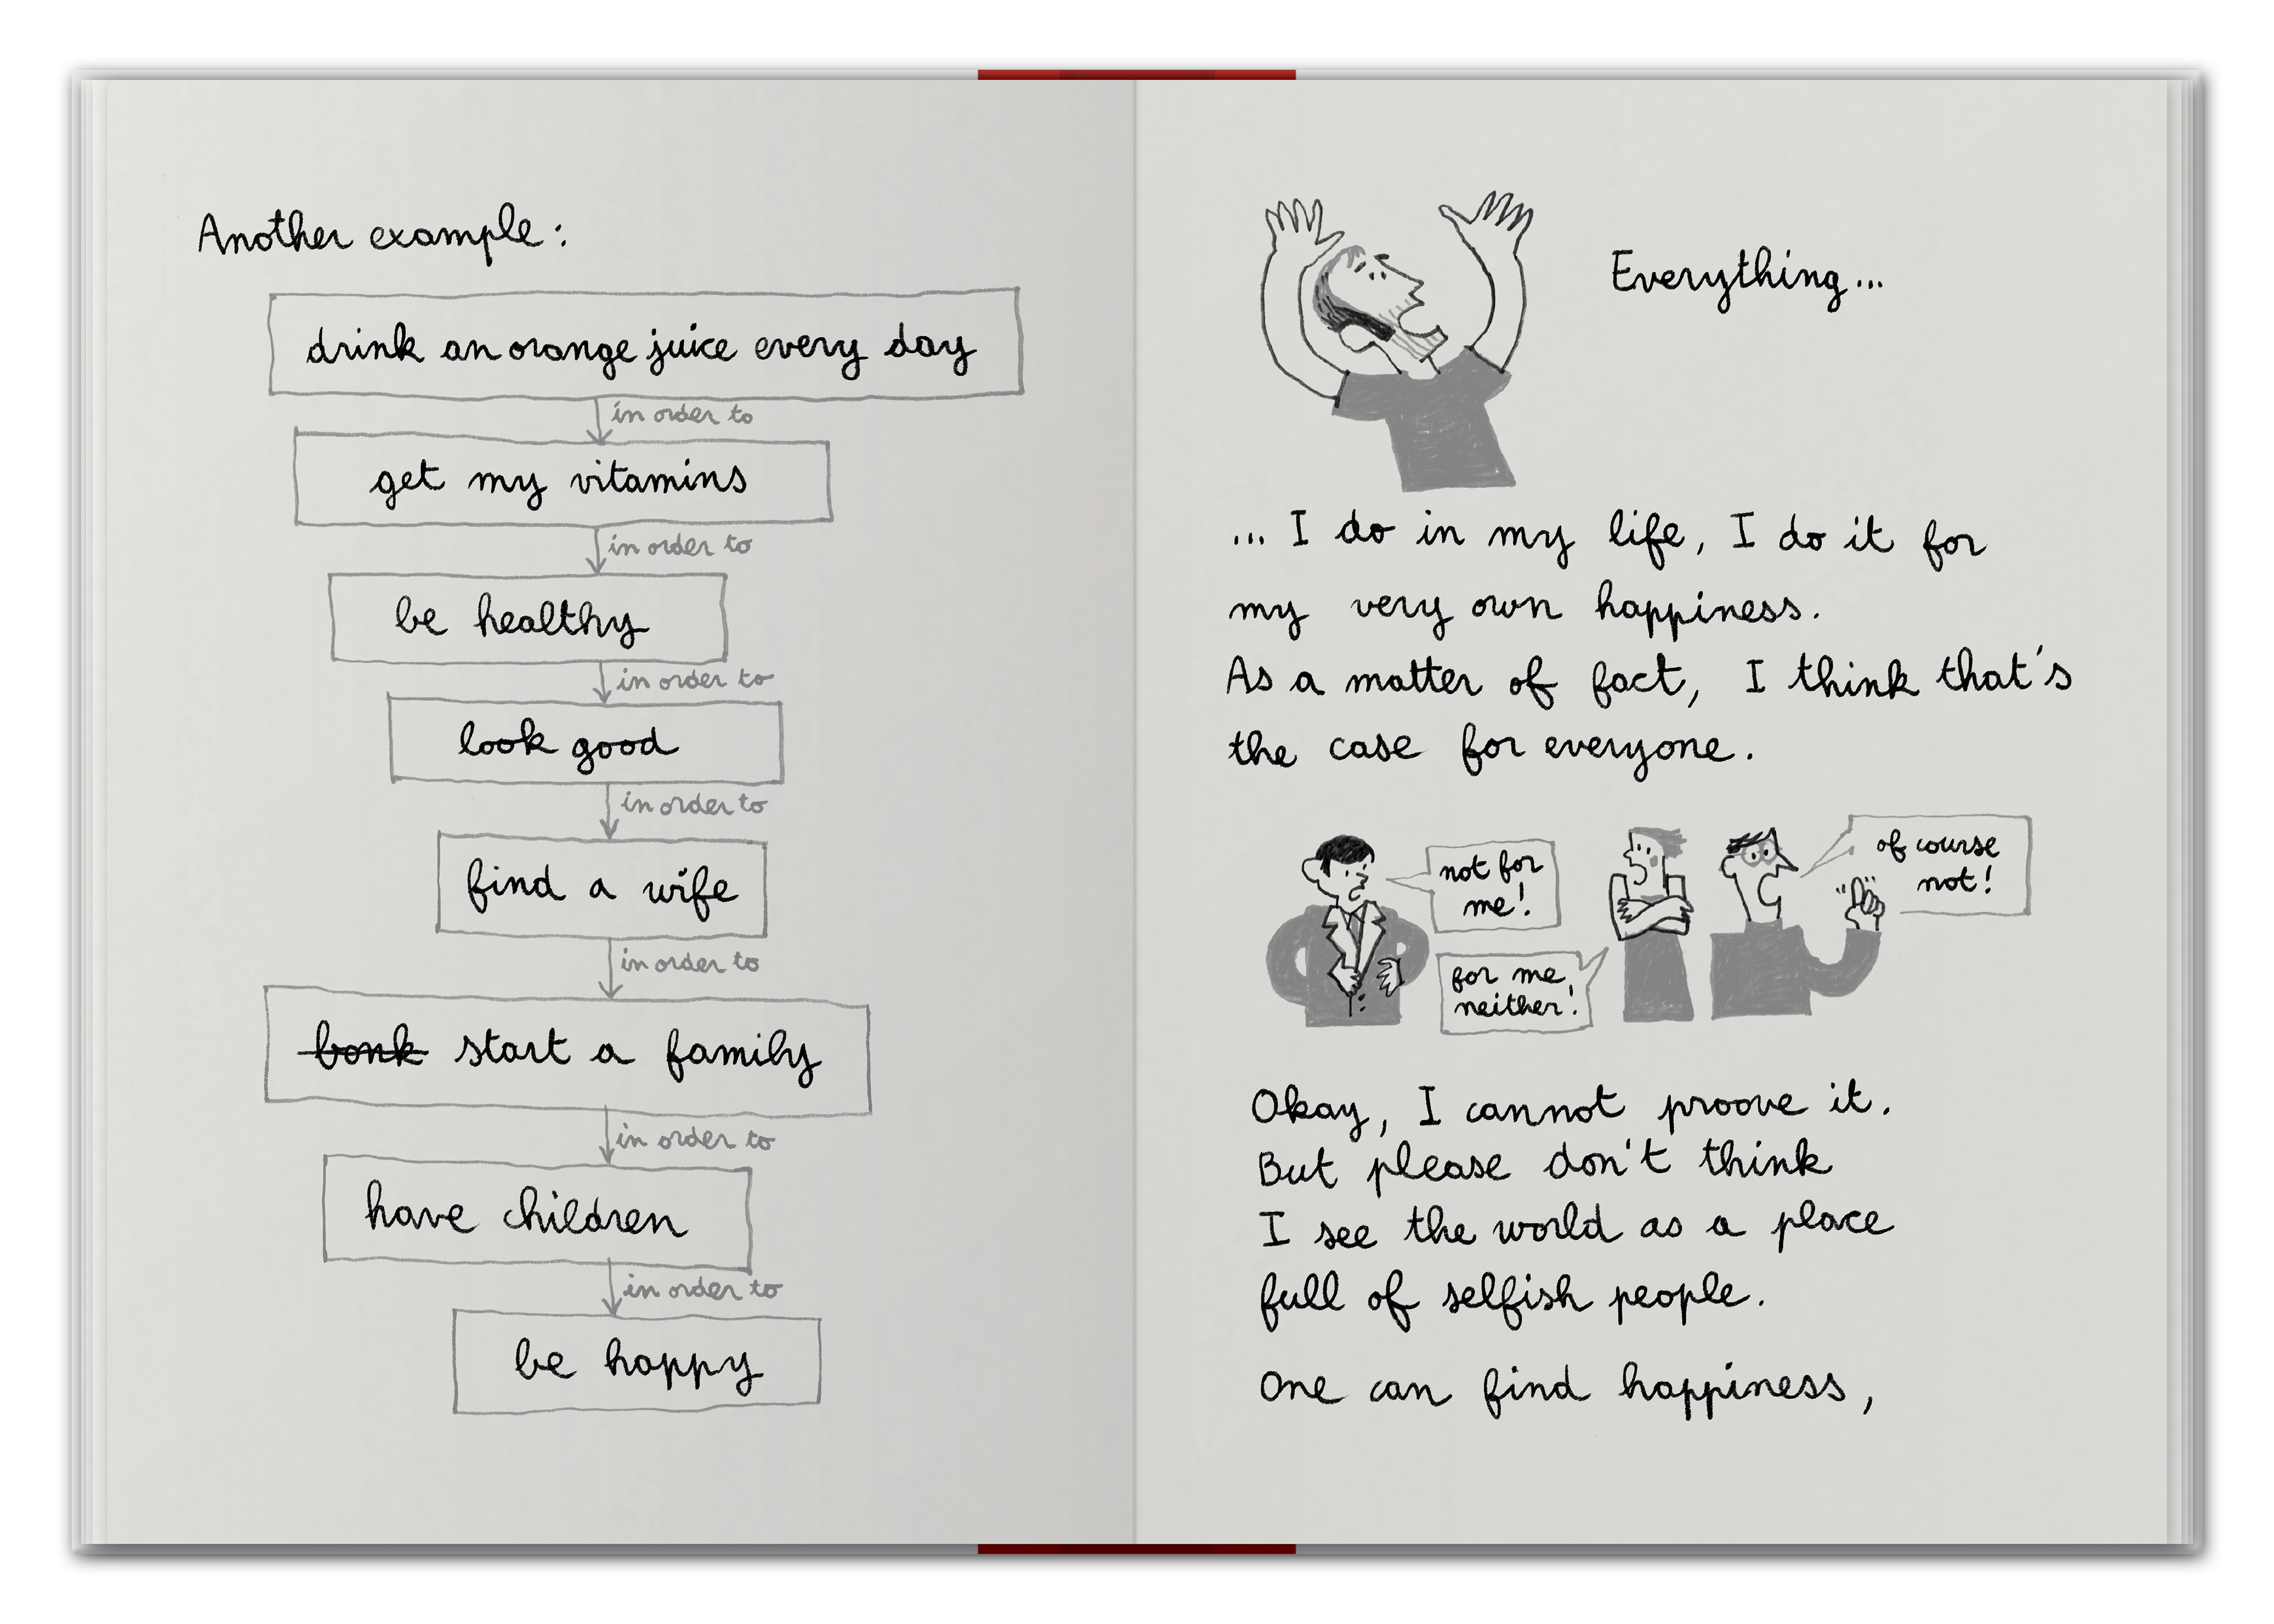 Another example:
drink an orange juice every day
in order to
get my vitamins
in order to
be healthy
in order to
look good
in order to
find a wife
in order to
bonk start a family
in order to
have children
in order to
be happy
Everything...
... I do in my life, I do it for
my very own happiness.
As a matter of fact, I think that's
the case for everyone.
not for
me!
for me
neither!
of course
not!
Okay, I cannot proove it.
But please don't think
I see the world as a place
full of selfish people.
One can find happiness,